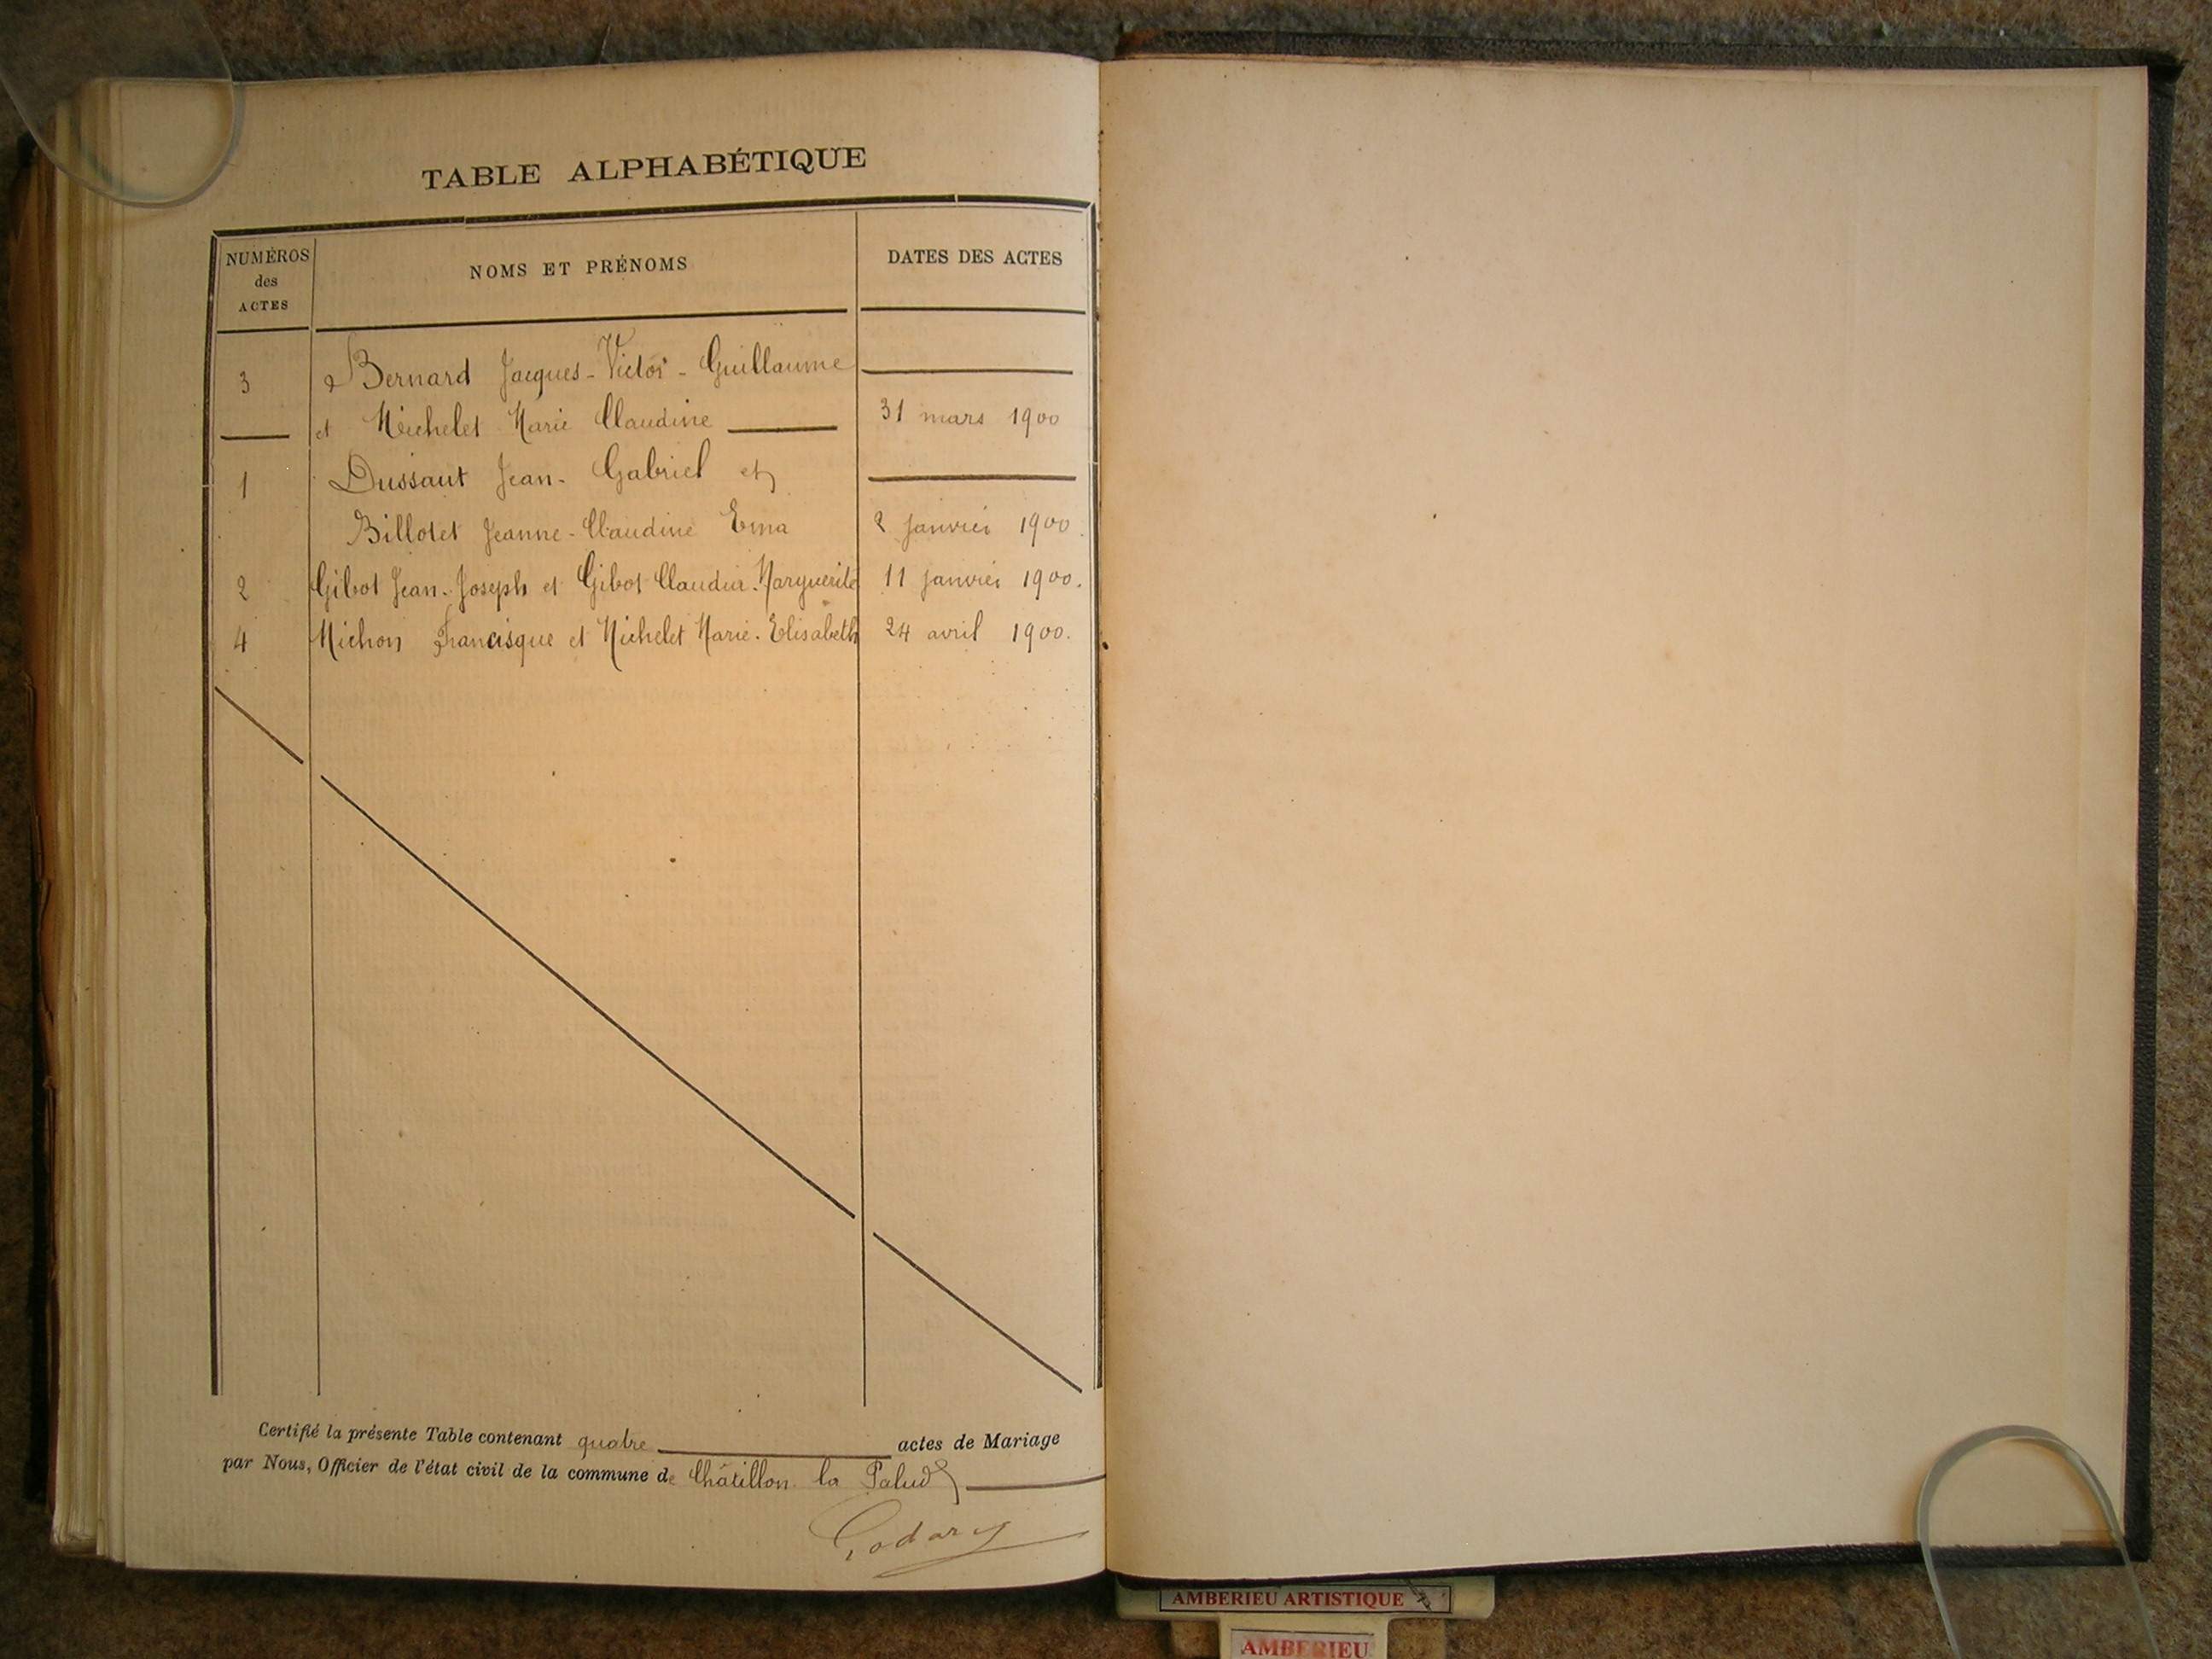 TABLE ALPHABÉTIQUE
NUMÉROS des ACTES NOMS ET PRÉNOMS DATES DES ACTES
3 Bernard Jacques-Victor-Guillaume
et Michelet Marie Claudine 31 mars 1900
1 Dussaut Jean-Gabriel et
Billotet Jeanne-Claudine Ema 2 janvier 1900.
2 Gibot Jean-Joseph et Gibot Claudia-Marguerite 11 janvier 1900.
4 Michon Francisque et Michelet Marie-Elisabeth 24 avril 1900.
Certifié la présente Table contenant quatre actes de Mariage
par Nous, Officier de l'état civil de la commune de Châtillon la Palud
AMBERIEU ARTISTIQUE
AMBERIEU